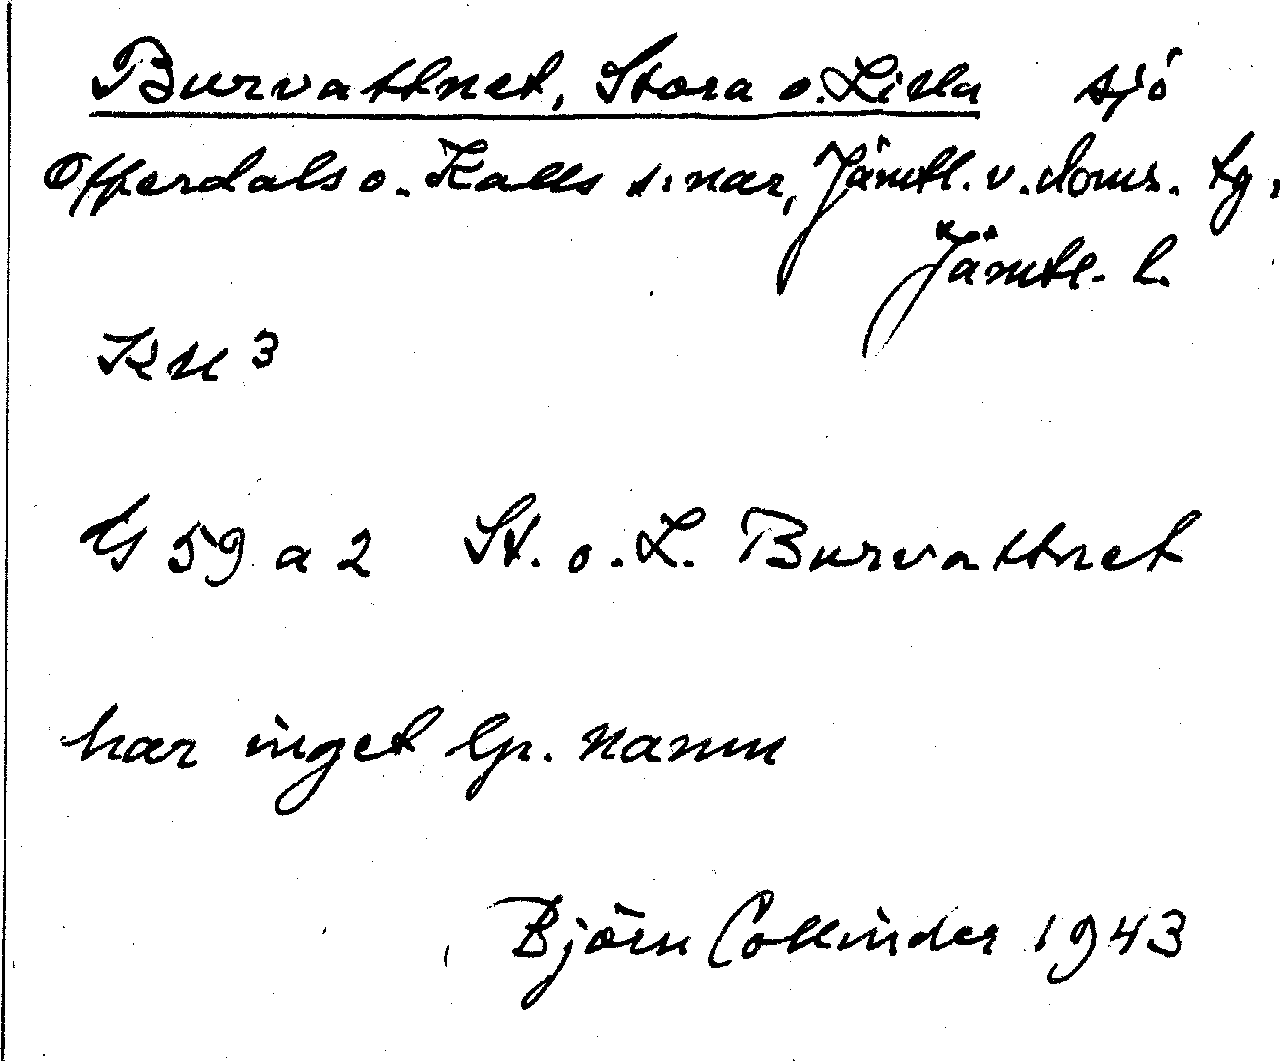 Burvattnet, Stora o. Lilla sjö
Offerdals o. Kalls s:nar, Jämtl. v. doms. tg.,
Jämtl. l.
KU 3
G 59 a 2 St. o. L. Burvattnet
har inget lp. namn
Björn Collinder 1943